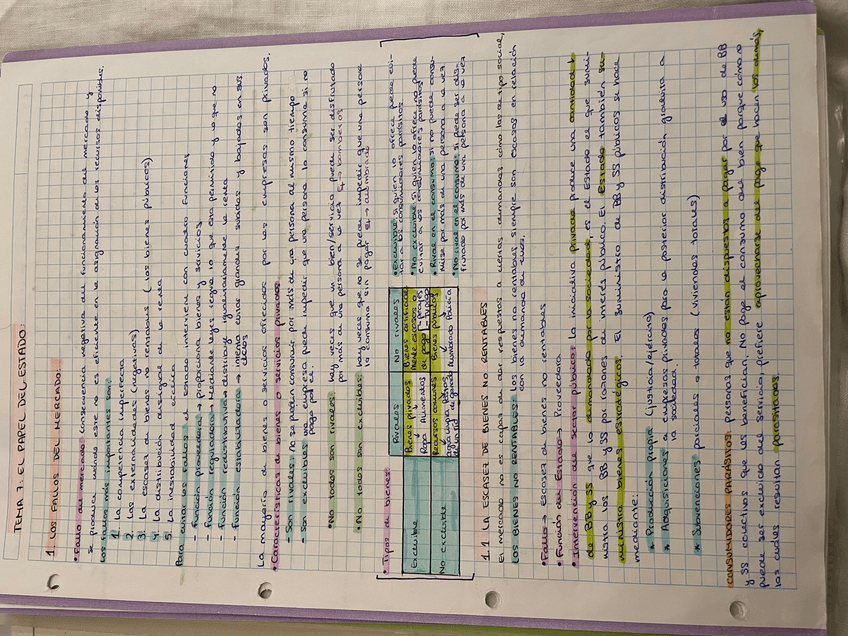 TEMA 7. EL PAPEL DEL ESTADO.
1. LOS FALLOS DEL MERCADO.
• Fallo del mercado: consecuencia negativa del funcionamiento del mercado y
se produce cuando este no es eficiente en la asignación de los recursos disponibles.
Los fallos más importantes son:
1. La competencia imperfecta
2. Las externalidades (negativas)
3. La escasez de bienes no rentables (los bienes públicos)
4. La distribución desigual de la renta
5. La inestabilidad cíclica
Para evitar los fallos el estado interviene con cuatro funciones
- función proveedora → proporciona bienes y servicios
- función reguladora → Mediante leyes regula lo que está permitido y lo que no
- función redistributiva → distribuye igualitariamente la renta
- función estabilizadora → intenta evitar grandes subidas y bajadas en los
ciclos
La mayoría de bienes o servicios ofrecidos por las empresas son privados.
• Características de bienes o servicios privados
- Son rivales: No se pueden consumir por más de una persona al mismo tiempo
- Son excluibles: una empresa puede impedir que una persona lo consuma si no
paga por él.
• No todos son rivales: hay veces que un bien/servicio puede ser disfrutado
por más de una persona a la vez Ej → bomberos
• No todos son excluibles: hay veces que no se puede impedir que una persona
lo consuma sin pagar Ej → alumbrado
• Tipos de bienes
Rivales
No rivales
Excluible
Bienes privados
Ropa Alimentos
No excluible
Recursos comunes
Bienes públicos
Alumbrado Policía
• Excluible: si quien lo ofrece puede evi-
tar a los consumidores parásitos
• No excluible: si quien lo ofrece no puede
evitar a los consumidores parásitos
• Rival en el consumo: si no puede consu-
mirse por más de una persona a la vez
• No rival en el consumo: si puede ser dis-
frutado por más de una persona a la vez
1.1 LA ESCASEZ DE BIENES NO RENTABLES
El mercado no es capaz de dar respuestas a ciertas demandas como las de tipo social,
LOS BIENES NO RENTABLES: los bienes no rentables siempre son escasos en relación
con la demanda de ellos.
• Fallo → Escasez de bienes no rentables
• Función del Estado → Proveedora
• Intervención del sector público: La iniciativa privada produce una cantidad ↓
de BB y SS que la demandada por la sociedad, es el Estado el que sumi-
nistra los BB y SS por razones de interés público. El Estado también su-
ministra bienes estratégicos. El suministro de BB y SS públicos se hace
mediante:
★ Producción propia (justicia/ejército)
★ Adquisiciones a empresas privadas para la posterior distribución gratuita a
la sociedad.
★ Subvenciones parciales o totales (viviendas sociales)
CONSUMIDORES PARÁSITOS: personas que no están dispuestas a pagar por el uso de BB
y SS colectivos que les benefician. No paga el consumo del bien porque como no
puede ser excluido del servicio, prefiere aprovecharse del pago que hacen los demás,
los cuales resultan parasitados.